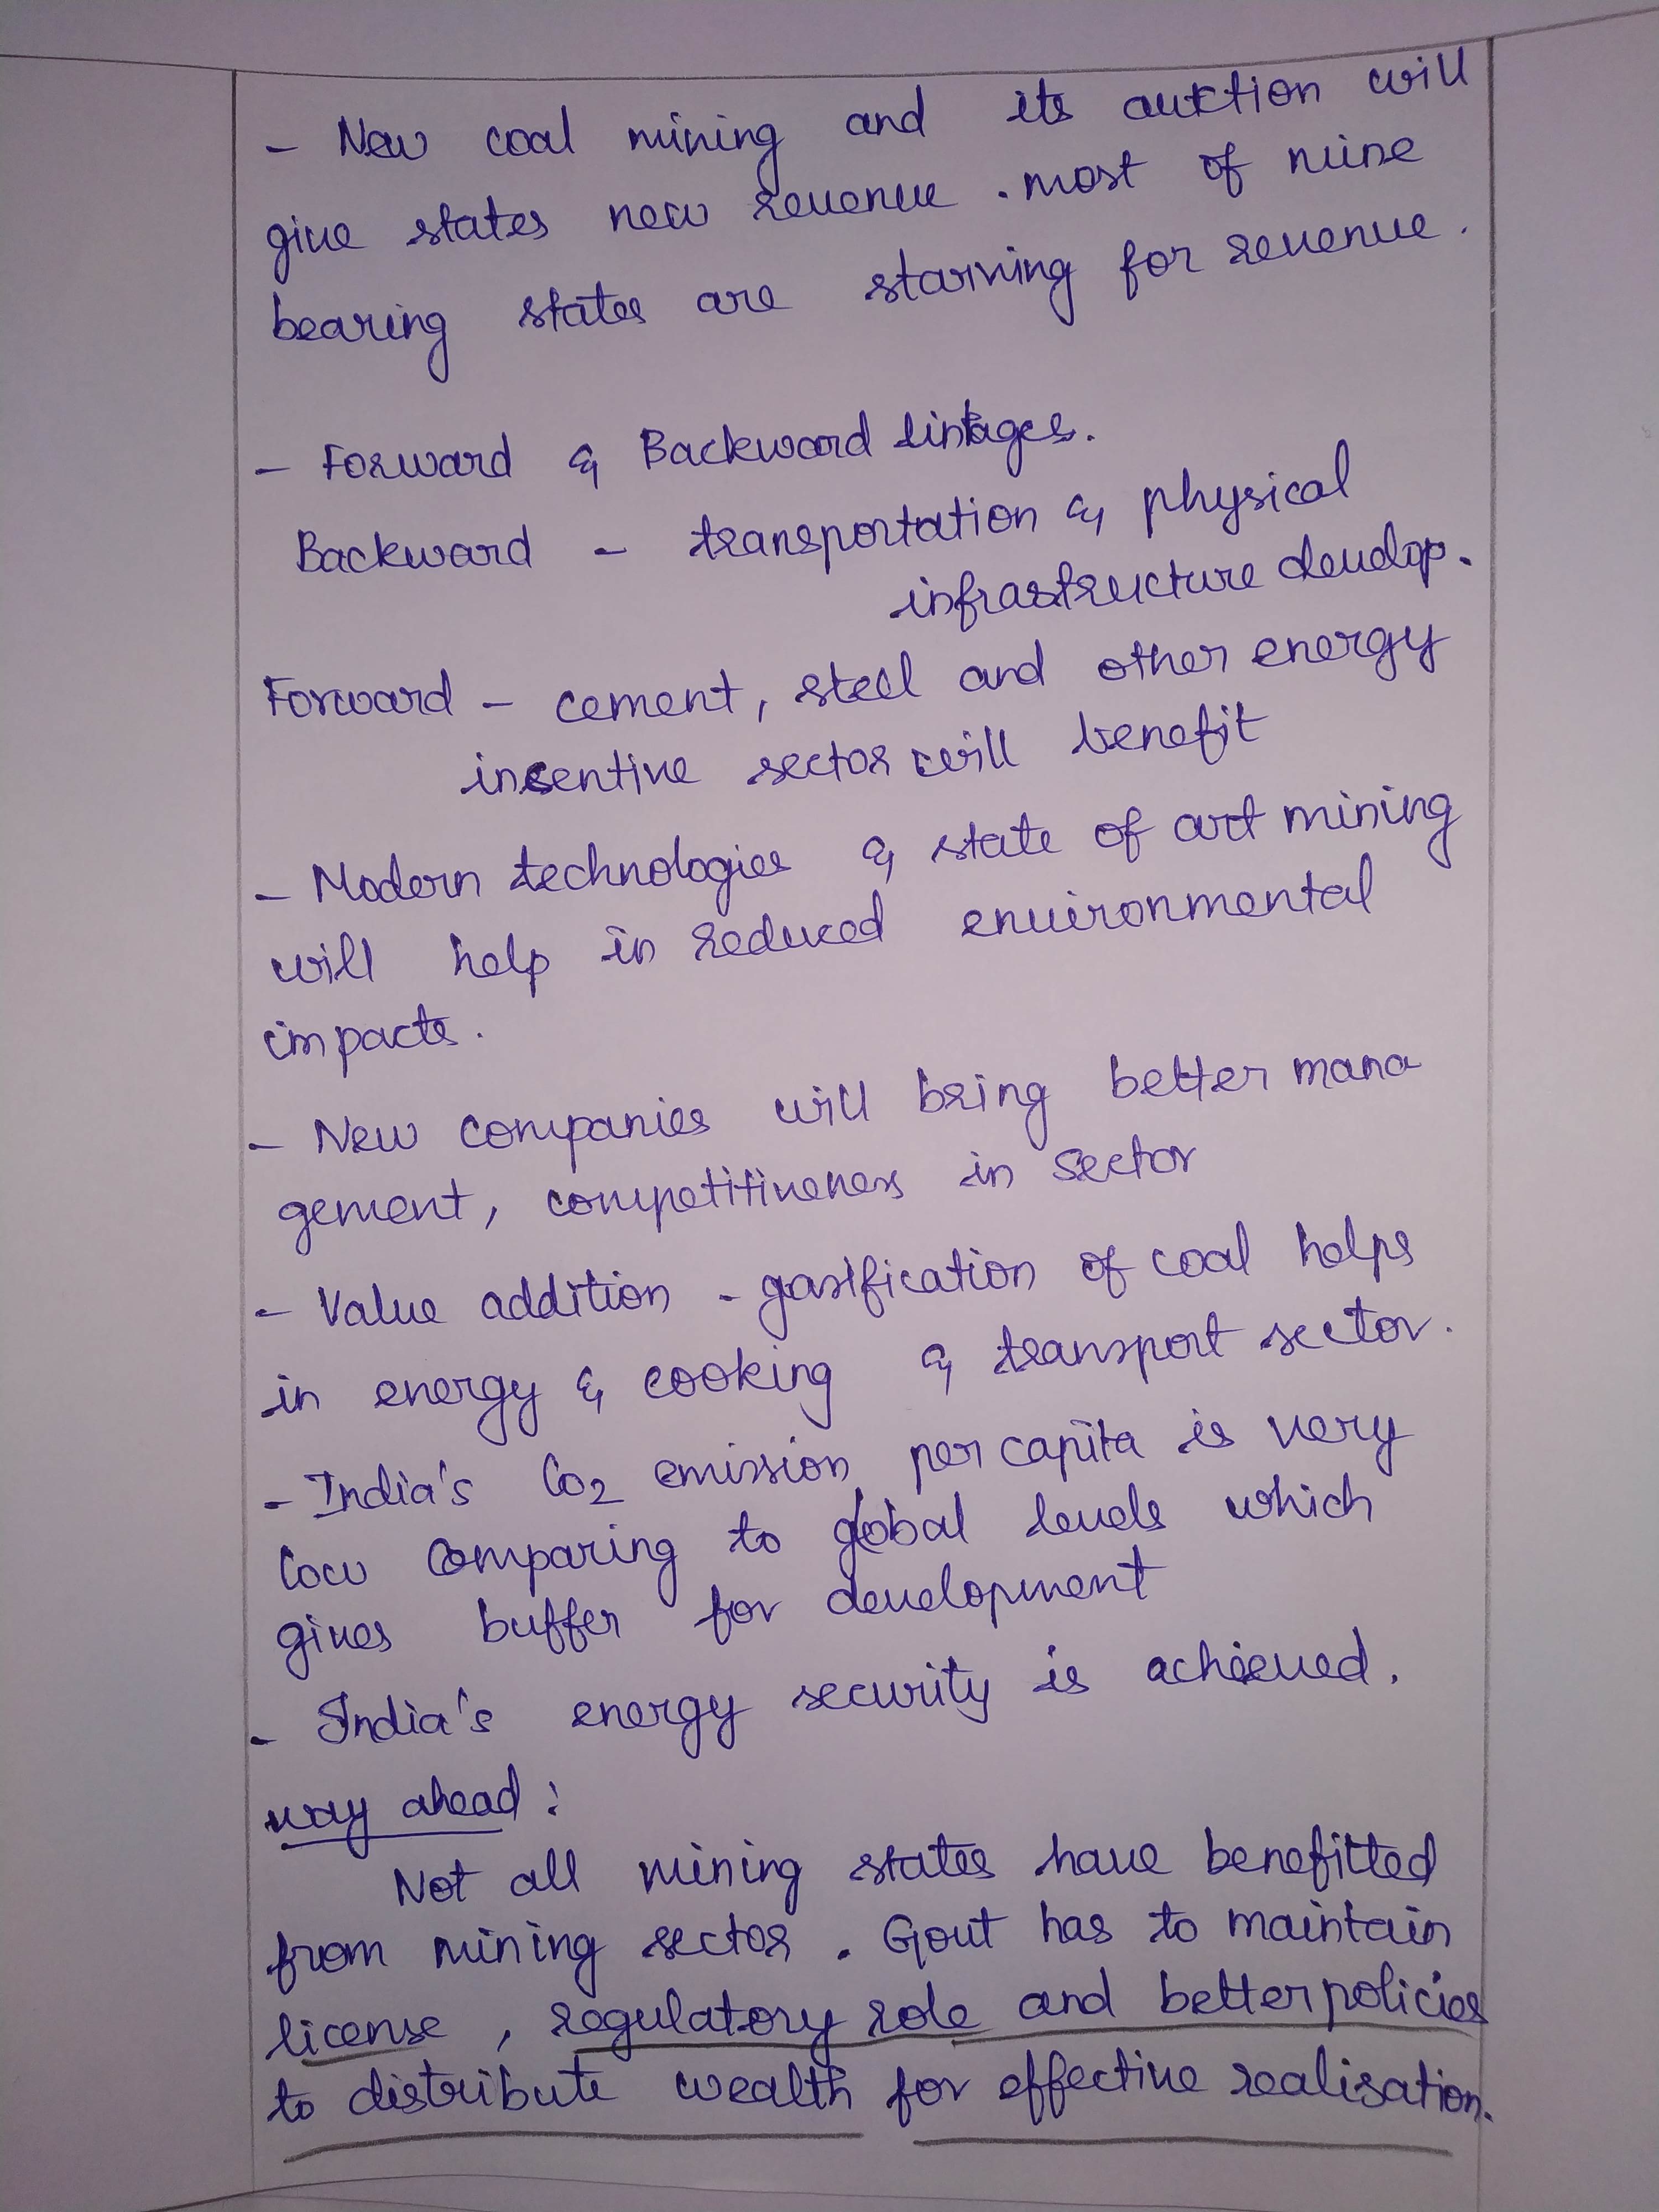 - New coal mining and its auction will
give states new revenue . most of mine
bearing states are starving for revenue .
- Forward & Backward linkages.
Backward - transportation & physical
infrastructure develop.
Forward - cement, steel and other energy
incentive sector will benefit
- Modern technologies & state of art mining
will help in reduced environmental
impacts .
- New companies will bring better mana
gement, competitiveness in sector
- Value addition - gasification of coal helps
in energy & cooking & transport sector .
- India's CO2 emission per capita is very
low comparing to global levels which
gives buffer for development
- India's energy security is achieved .
way ahead :
Not all mining states have benefitted
from mining sector . Govt has to maintain
license , regulatory role and better policies
to distribute wealth for effective realisation.